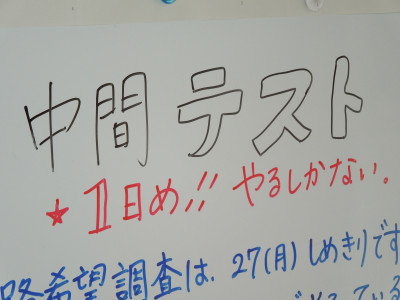 中間テスト
★Ⅱ日め!! やるしかない。
路希望調査は、27(月)しめきりです